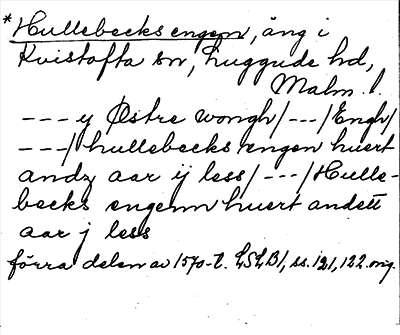 *Hullebecks engen, äng i
Kvistofta sn, Luggude hd,
Malm. l.
- - - y Østre wongh/ - - - /Engh/
- - - / hullebecks engen huert
andz aar ij less/ - - - /Hulle-
becks engenn huert andett
aar j less
förra delen av 1570-t. LSLB1, ss. 121, 122 orig.